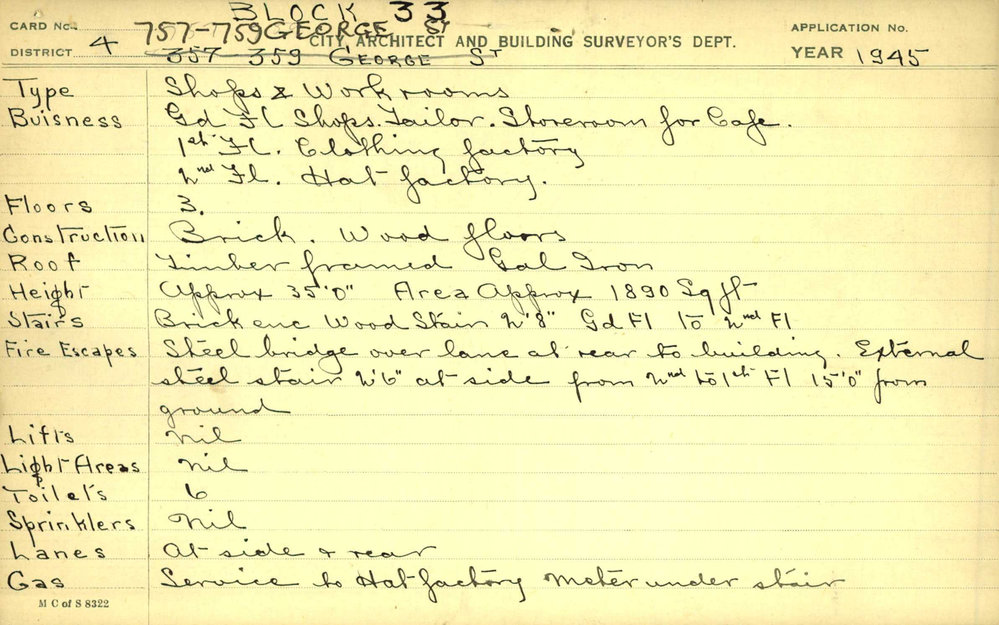 BLOCK 33
CARD No. 757-759 GEORGE ST APPLICATION No.
CITY ARCHITECT AND BUILDING SURVEYOR'S DEPT.
DISTRICT 4 357 359 GEORGE ST YEAR 1945
Type Shops & Workrooms
Buisness Gd Fl Shops. Tailor. Storeroom for Cafe.
1st Fl. Clothing factory
2nd Fl. Hat factory.
Floors 3.
Construction Brick. Wood floors
Roof Timber framed Gal Iron
Height Approx 35'0" Area Approx 1890 Sq ft
Stairs Brick enc Wood Stair 2'8" Gd Fl to 2nd Fl
Fire Escapes Steel bridge over lane at rear to building. External
steel stair 2'6" at side from 2nd to 1st Fl 15'0" from
ground
Lifts nil
Light Areas nil
Toilets 6
Sprinklers nil
Lanes At side & rear
Gas Service to Hat factory meter under stair
M C of S 8322